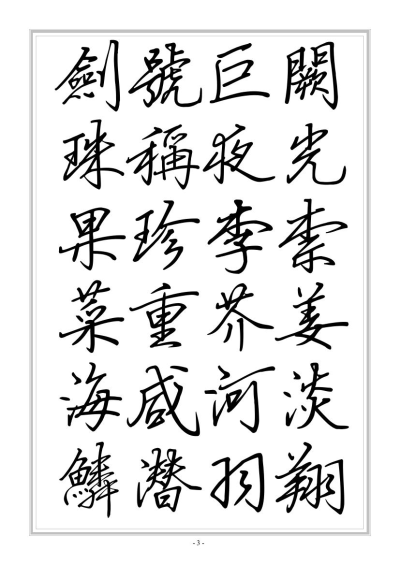 劍號巨闕
珠稱夜光
果珍李柰
菜重芥姜
海咸河淡
鱗潛羽翔
- 3 -